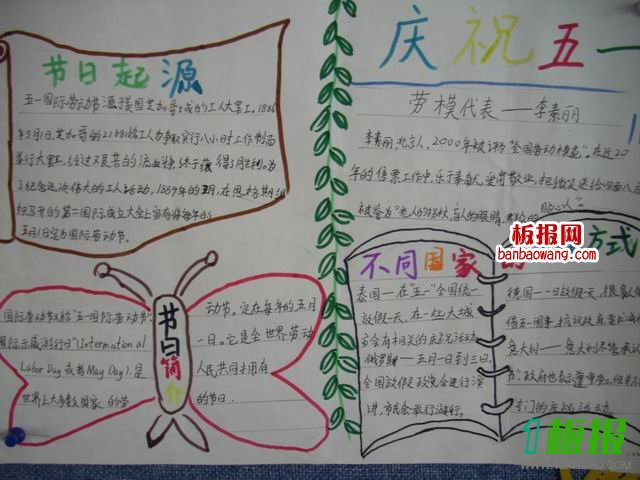 节日起源
五一国际劳动节源于美国芝加哥城的工人大罢工。1886
年5月1日,芝加哥的21.6万名工人为争取实行八小时工作制而
举行大罢工,经过艰苦的流血,终于获得了胜利。为
了纪念这次伟大的工人运动,1889年的7月,在恩格斯组
织召开的第二国际成立大会上宣布将每年的
五月1日定为国际劳动节。
庆祝五一
劳模代表——李素丽
李素丽,北京人,2000年被评为"全国劳动模范"。在近20
年的售票工作中,乐于奉献,爱岗敬业,把微笑送给四面八方
被誉为"老人的拐杖,盲人的眼睛,
贴心人"。
节日简介
国际劳动节又称"五一国际劳动节"
国际示威游行日"(International
Labor Day 或者May Day),是
世界上大多数国家的劳
动节。定在每年的五月
一日。它是全世界劳动
人民共同拥有
的节日.
不同国家的 方式
泰国—在"五一"全国统一
放假一天,在一些大城
市会有相关的庆祝活动.
俄罗斯—五月一日到三日,
全国放假政党会进行演
讲,市民会举行游行。
德国—1日放假一天,很多
意大利—意大利尽管承认
节,政府也表示
专门的庆祝活动.
板报网
banbaowang.com
1板报